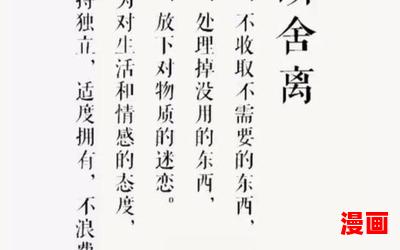 舍离
不收取不需要的东西,
处理掉没用的东西,
放下对物质的迷恋。
对生活和情感的态度,
独立,适度拥有,不浪
漫画